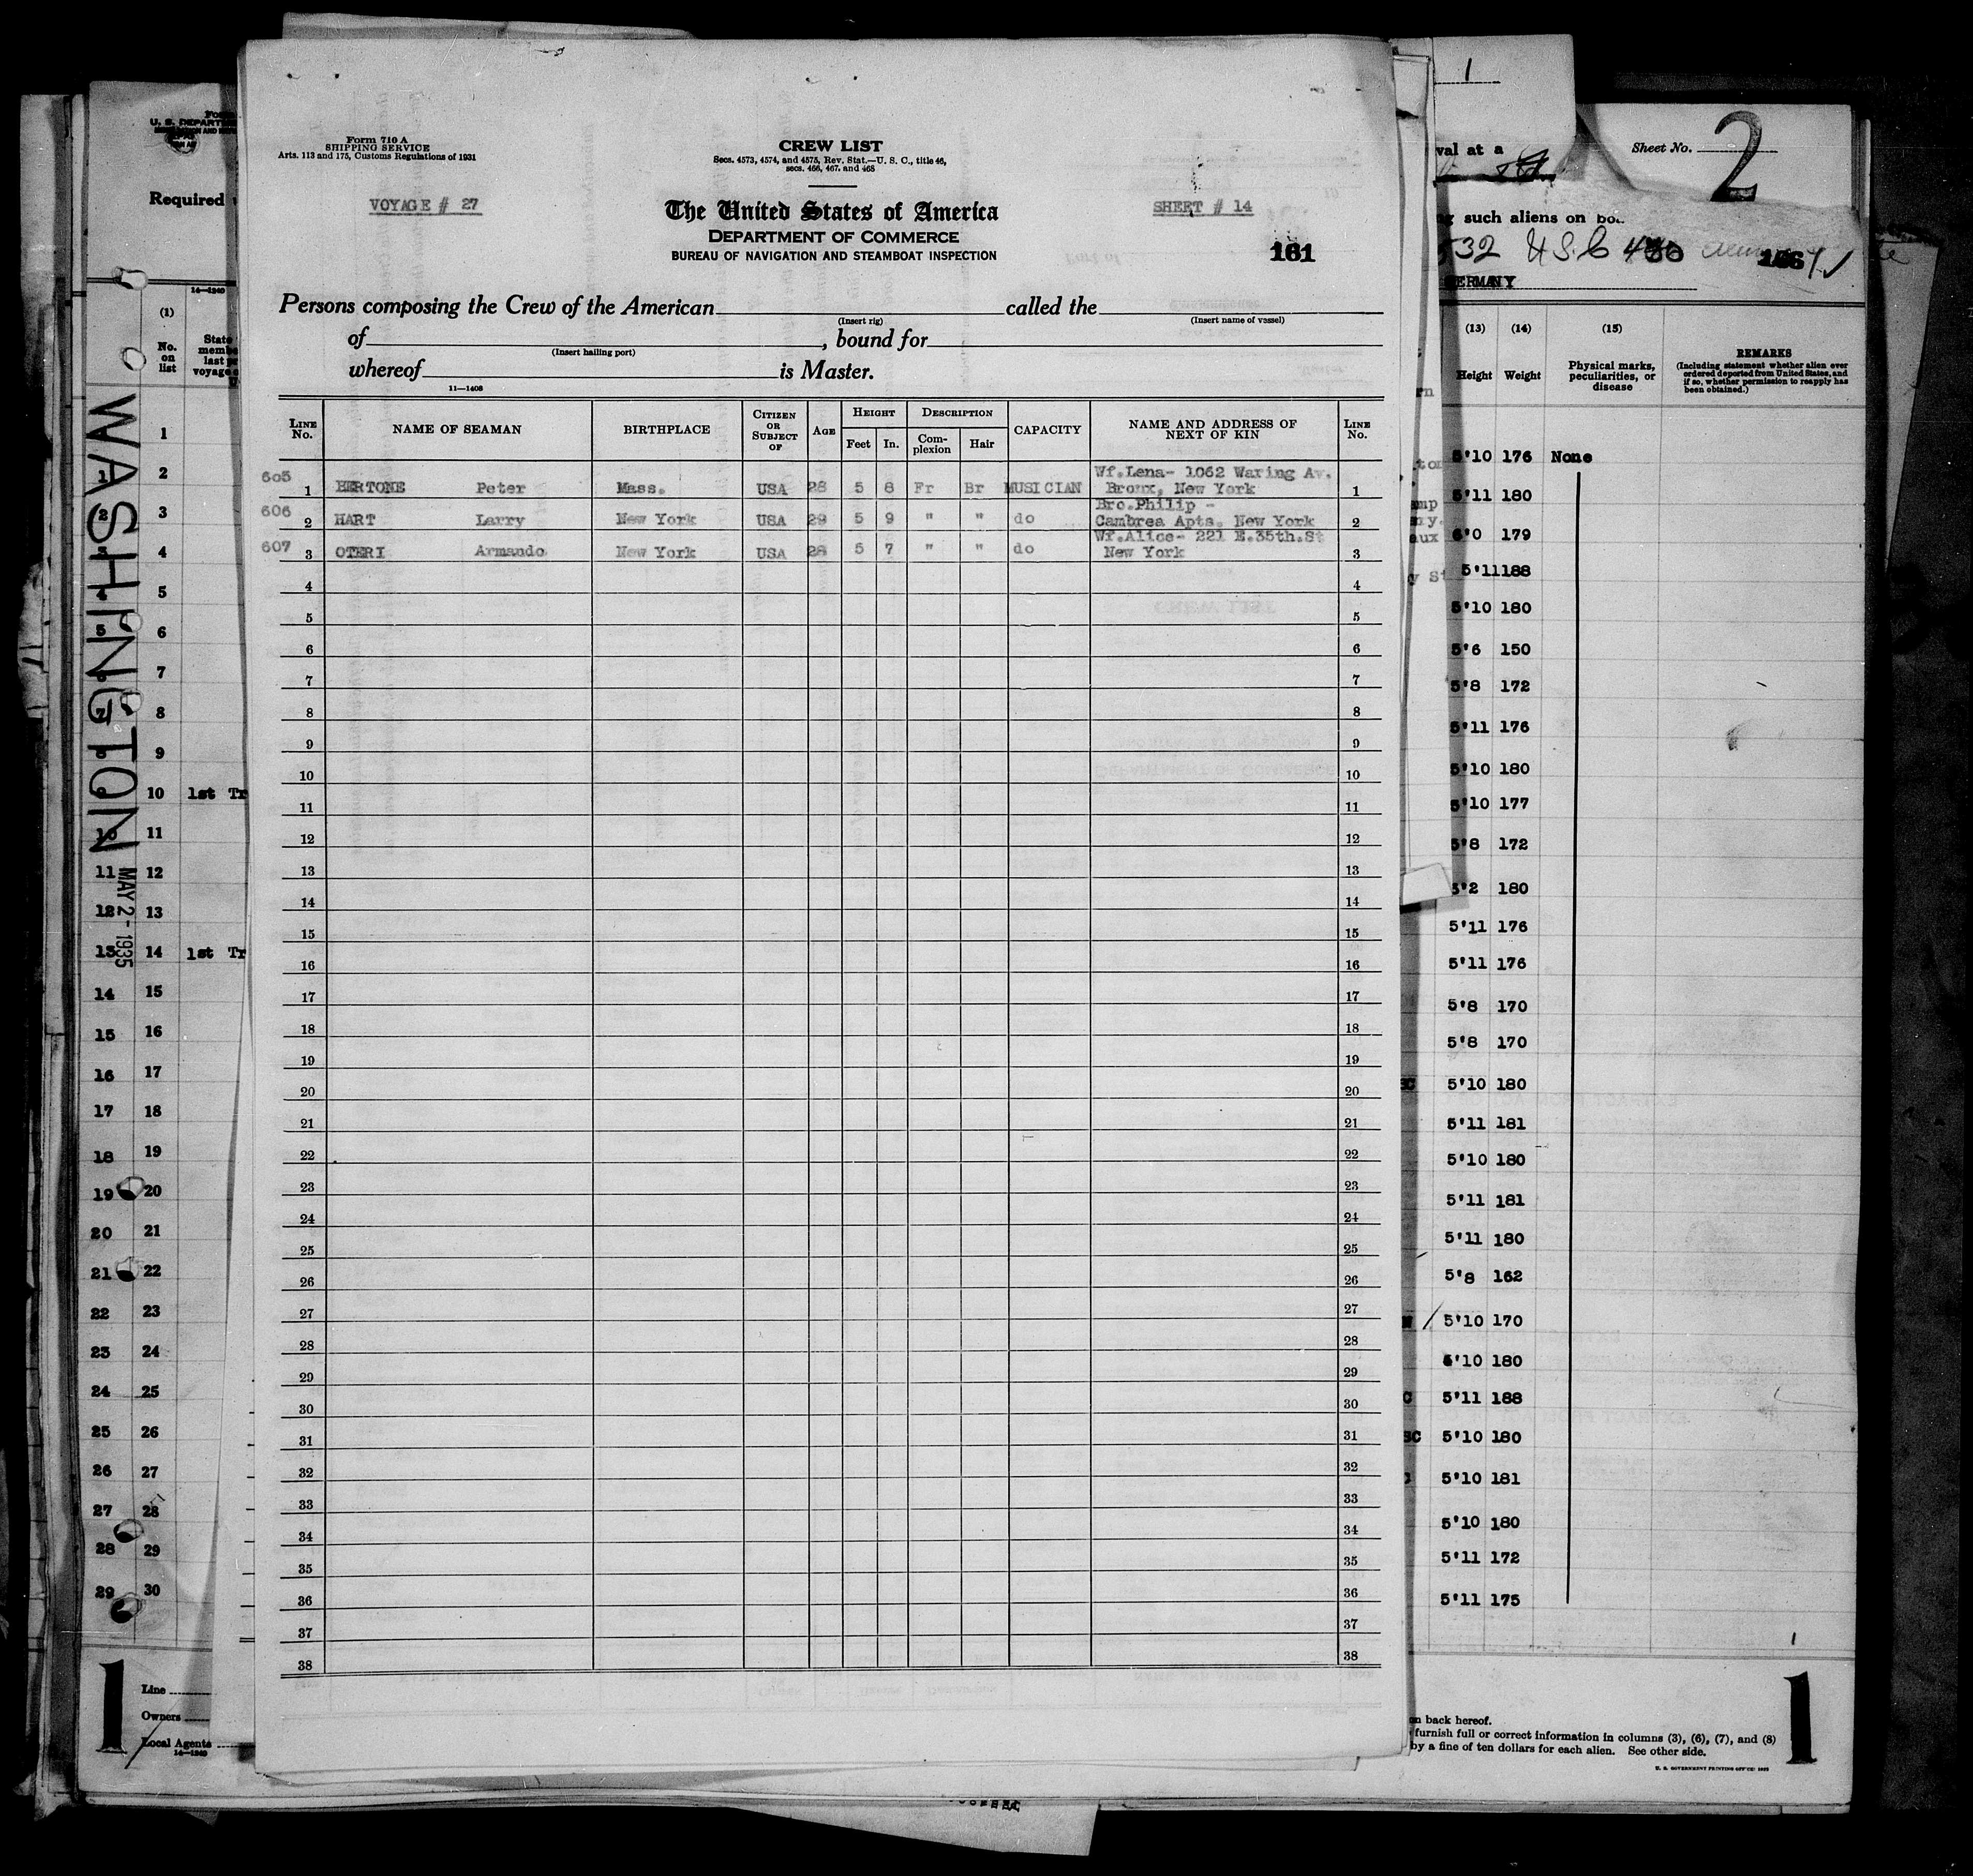 Form 710 A
SHIPPING SERVICE
Arts. 113 and 175, Customs Regulations of 1931
CREW LIST
Secs. 4573, 4574, and 4575, Rev. Stat.—U. S. C., title 46,
secs. 466, 467, and 468
VOYAGE # 27
The United States of America
SHEET # 14
DEPARTMENT OF COMMERCE
BUREAU OF NAVIGATION AND STEAMBOAT INSPECTION
161
Persons composing the Crew of the American called the
(Insert rig) (Insert name of vessel)
of , bound for
(Insert hailing port)
whereof is Master.
11—1408
LINE No. NAME OF SEAMAN BIRTHPLACE CITIZEN OR SUBJECT OF AGE HEIGHT Feet In. DESCRIPTION Complexion Hair CAPACITY NAME AND ADDRESS OF NEXT OF KIN LINE No.
605 1 BERTONE Peter Mass. USA 28 5 8 Fr Br MUSICIAN Wf.Lena- 1062 Waring Av. Bronx, New York 1
606 2 HART Larry New York USA 29 5 9 " " do Bro.Philip - Cambrea Apts. New York 2
607 3 OTERI Armando New York USA 28 5 7 " " do Wf.Alice- 221 E.35th.St New York 3
4 4
5 5
6 6
7 7
8 8
9 9
10 10
11 11
12 12
13 13
14 14
15 15
16 16
17 17
18 18
19 19
20 20
21 21
22 22
23 23
24 24
25 25
26 26
27 27
28 28
29 29
30 30
31 31
32 32
33 33
34 34
35 35
36 36
37 37
38 38
U. S. DEPART
Required
14—1240
(1)
No. on list
State
memb
last
voyage
WASHINGTON
MAY 2 - 1935
1
1 2
2 3
3 4
4 5
5 6
6 7
7 8
8 9
9 10 1st Tr
10 11
11 12
12 13
13 14 1st Tr
14 15
15 16
16 17
17 18
18 19
19 20
20 21
21 22
22 23
23 24
24 25
25 26
26 27
27 28
28 29
29 30
1
Line
Owners
Local Agents
14—1240
1
val at a
Sheet No. 2
such aliens on bo
532 U.S.C
GERMANY
(13) (14) (15)
Height Weight Physical marks, peculiarities, or disease
REMARKS
(Including statement whether alien ever
ordered deported from United States, and
if so, whether permission to reapply has
been obtained.)
5'10 176 None
5'11 180
6'0 179
5'11 188
5'10 180
5'6 150
5'8 172
5'11 176
5'10 180
5'10 177
5'8 172
5'2 180
5'11 176
5'11 176
5'8 170
5'8 170
5'10 180
5'11 181
5'10 180
5'11 181
5'11 180
5'8 162
5'10 170
5'10 180
5'11 188
5'10 180
5'10 181
5'10 180
5'11 172
5'11 175
on back hereof.
furnish full or correct information in columns (3), (6), (7), and (8)
by a fine of ten dollars for each alien. See other side.
U. S. GOVERNMENT PRINTING OFFICE
1